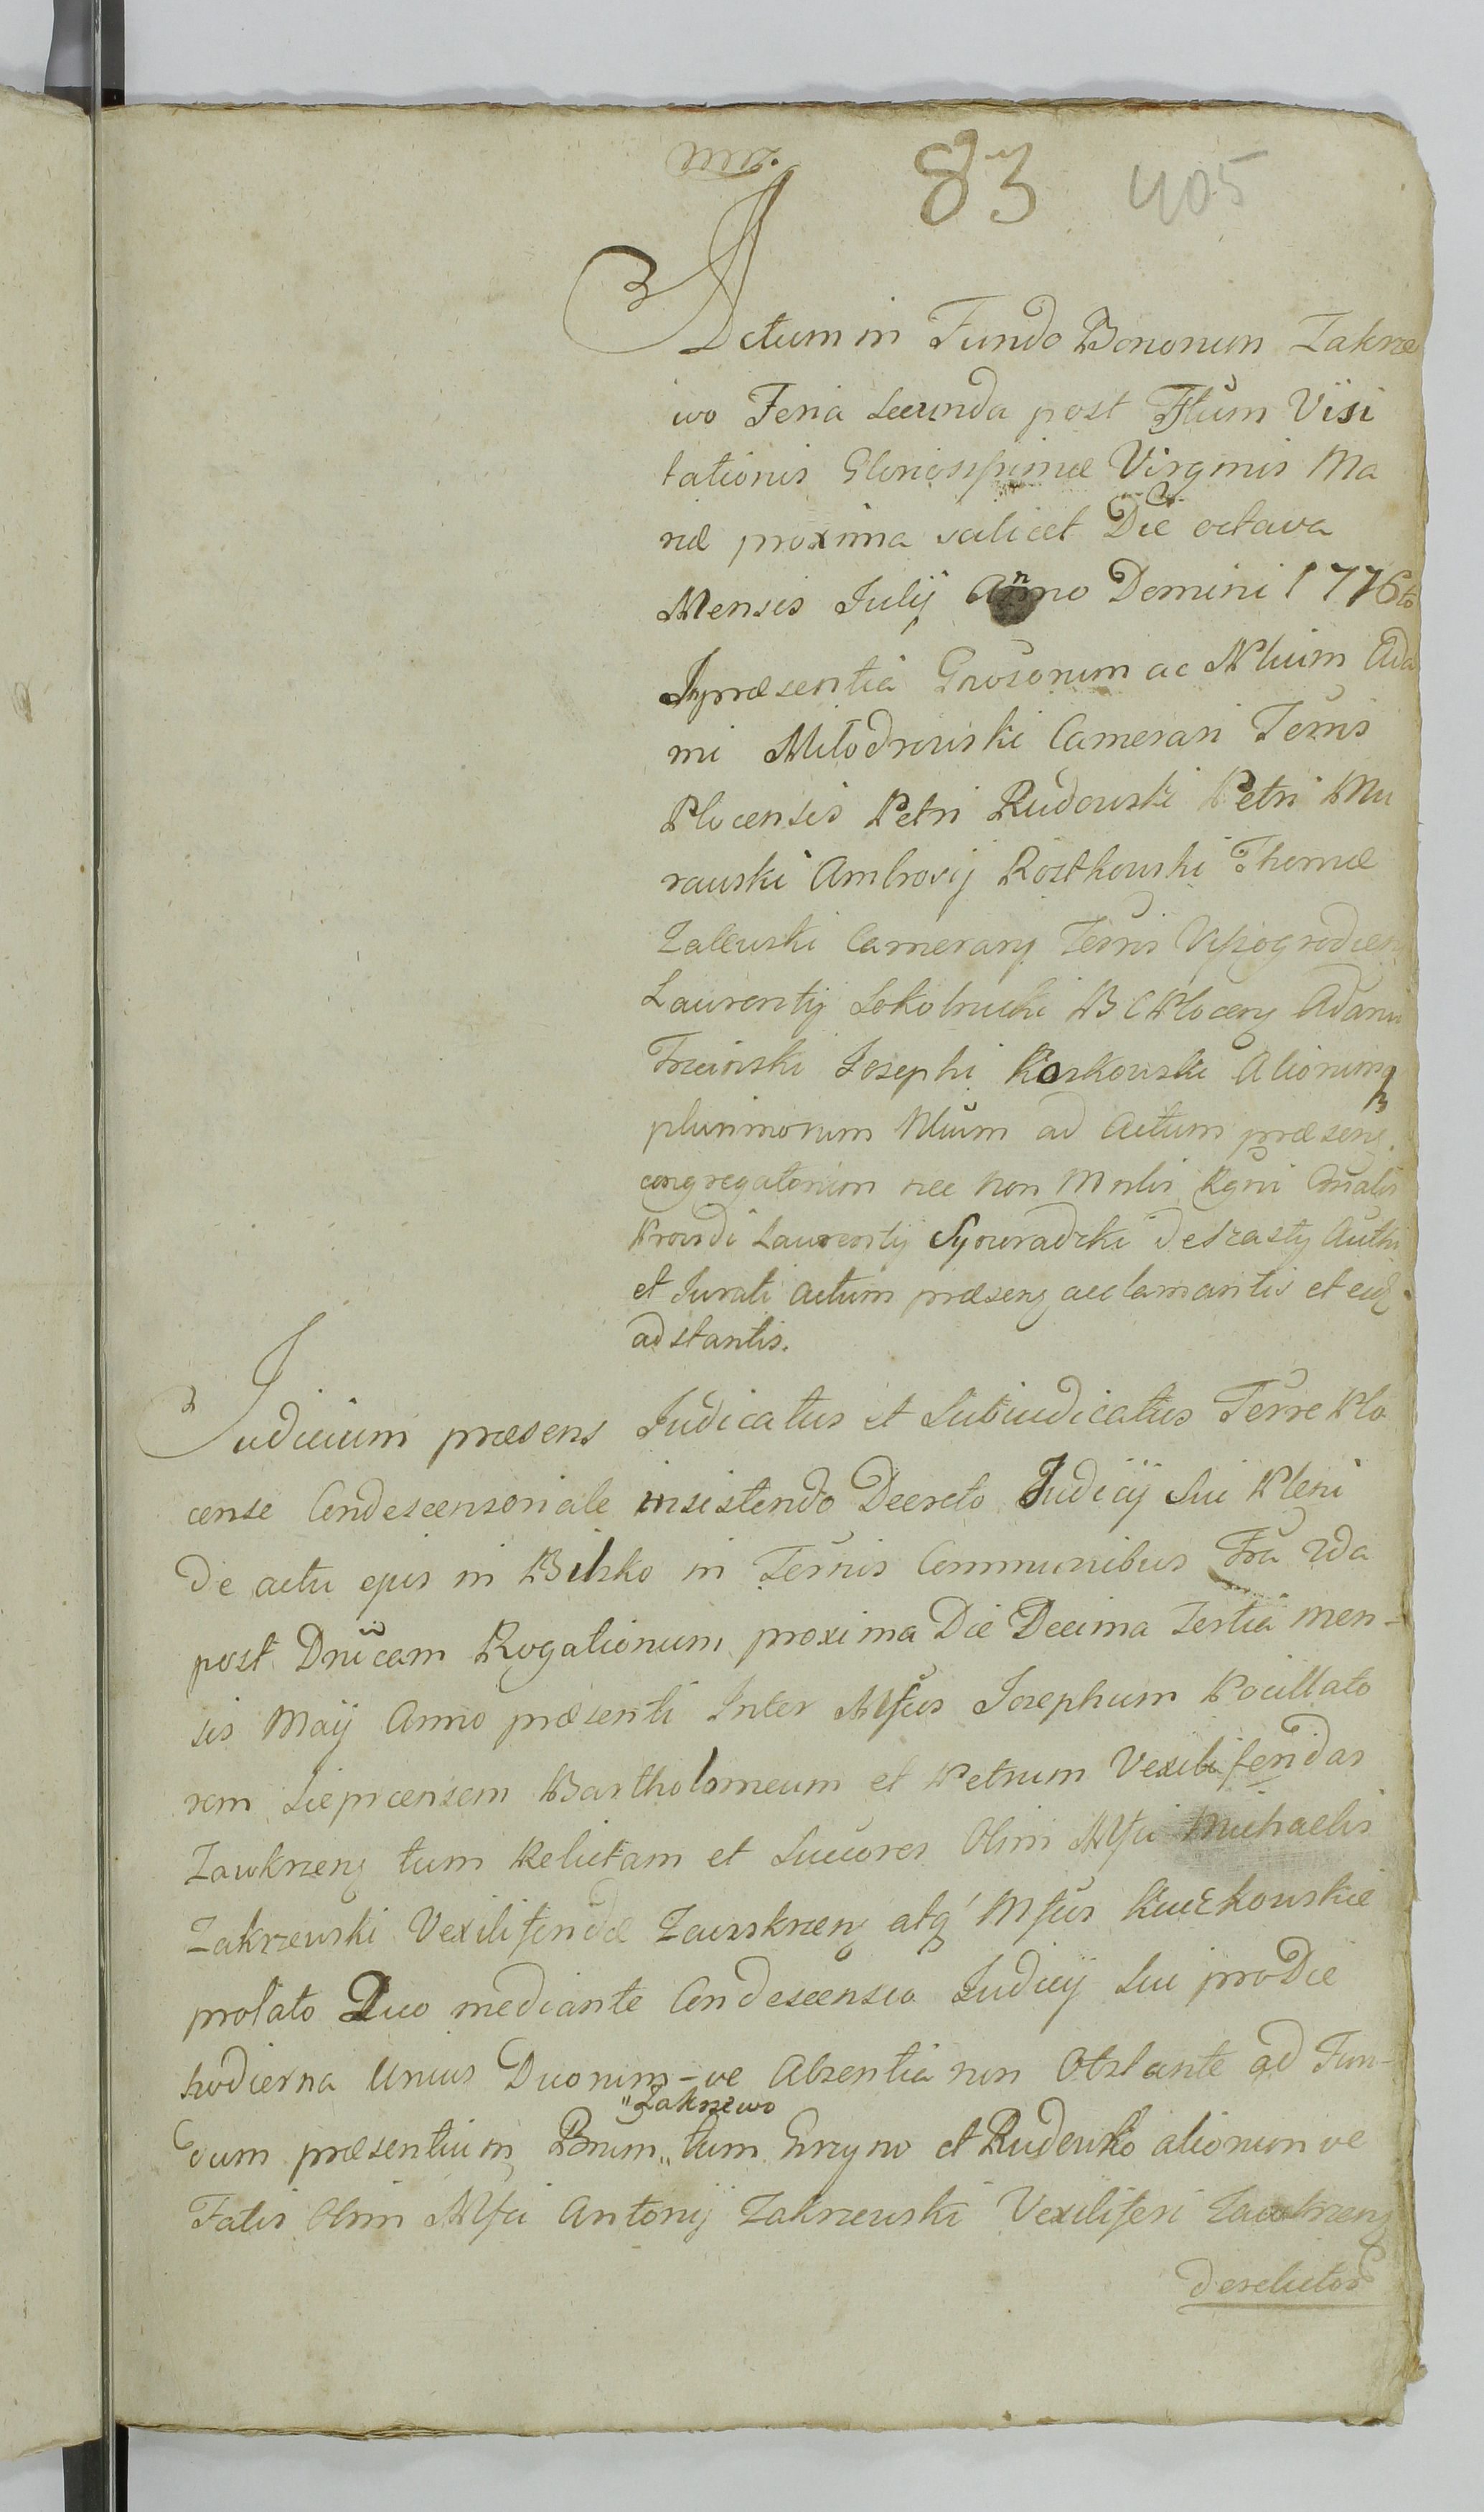 mp.
83 405
Actum in Fundo Bonorum Zakrze
wo Feria Secunda post Ftum Visi
tationis Gloriosissimæ Virginis Ma
riæ proxima scilicet Die octava
Mensis Julij Anno Domini 1776to
Inpræsentia Grosorum ac Nlium Ada
mi Miłodrowski Camerari Terris
Plocensis Petri Rudowski Petri Mu
rawski Ambrosij Rostkowski Thomæ
Zalewski Camerarij Terris Wyszogrodien
Laurentij Sokolnicki B C Plocens Adami
Trzcinski Josephi Koskowski Aliorumq
plurimorum Nlium ad Actum præsens
congregatorum nec non Mnlis Rgni Gnalis
Provdi Laurentij Syouradzki de Szasty Auth
et Jurati actum præsens acclamantis et eid
adstantis.
Judicium præsens Judicatus et Subjudicatus Terre Plo
cense Condescensoriale insistendo Decreto Judicij Sui Pleni
de actu ejus in Bilsko in Terris Communibus Fria 2da
post Dnicam Rogationum proxima Die Decima Tertia men-
sis Maij Anno præsenti Inter Mfcos Josephum Pocillato
rem Sieprcensem Bartholomeum et Petrum Vexiliferidas
Zawkrzens tum Relictam et Succores Olim Mfci Michaelis
Zakrzewski Vexiliferidæ Zawskrzens atq Mfcos Kuczkowskie
prolato Quo mediante Condescensio Judicij Sui pro Die
hodierna Unius Duorum-ve Absentia non Obstante ad Fun-
"Zakrzewo
dum præsentium Bnrum,, tum Grzywo et Rudowko aliorumve
Fatis Olim Mfci Antonij Zakrzewski Vexiliferi Zawkrzens
derelictor